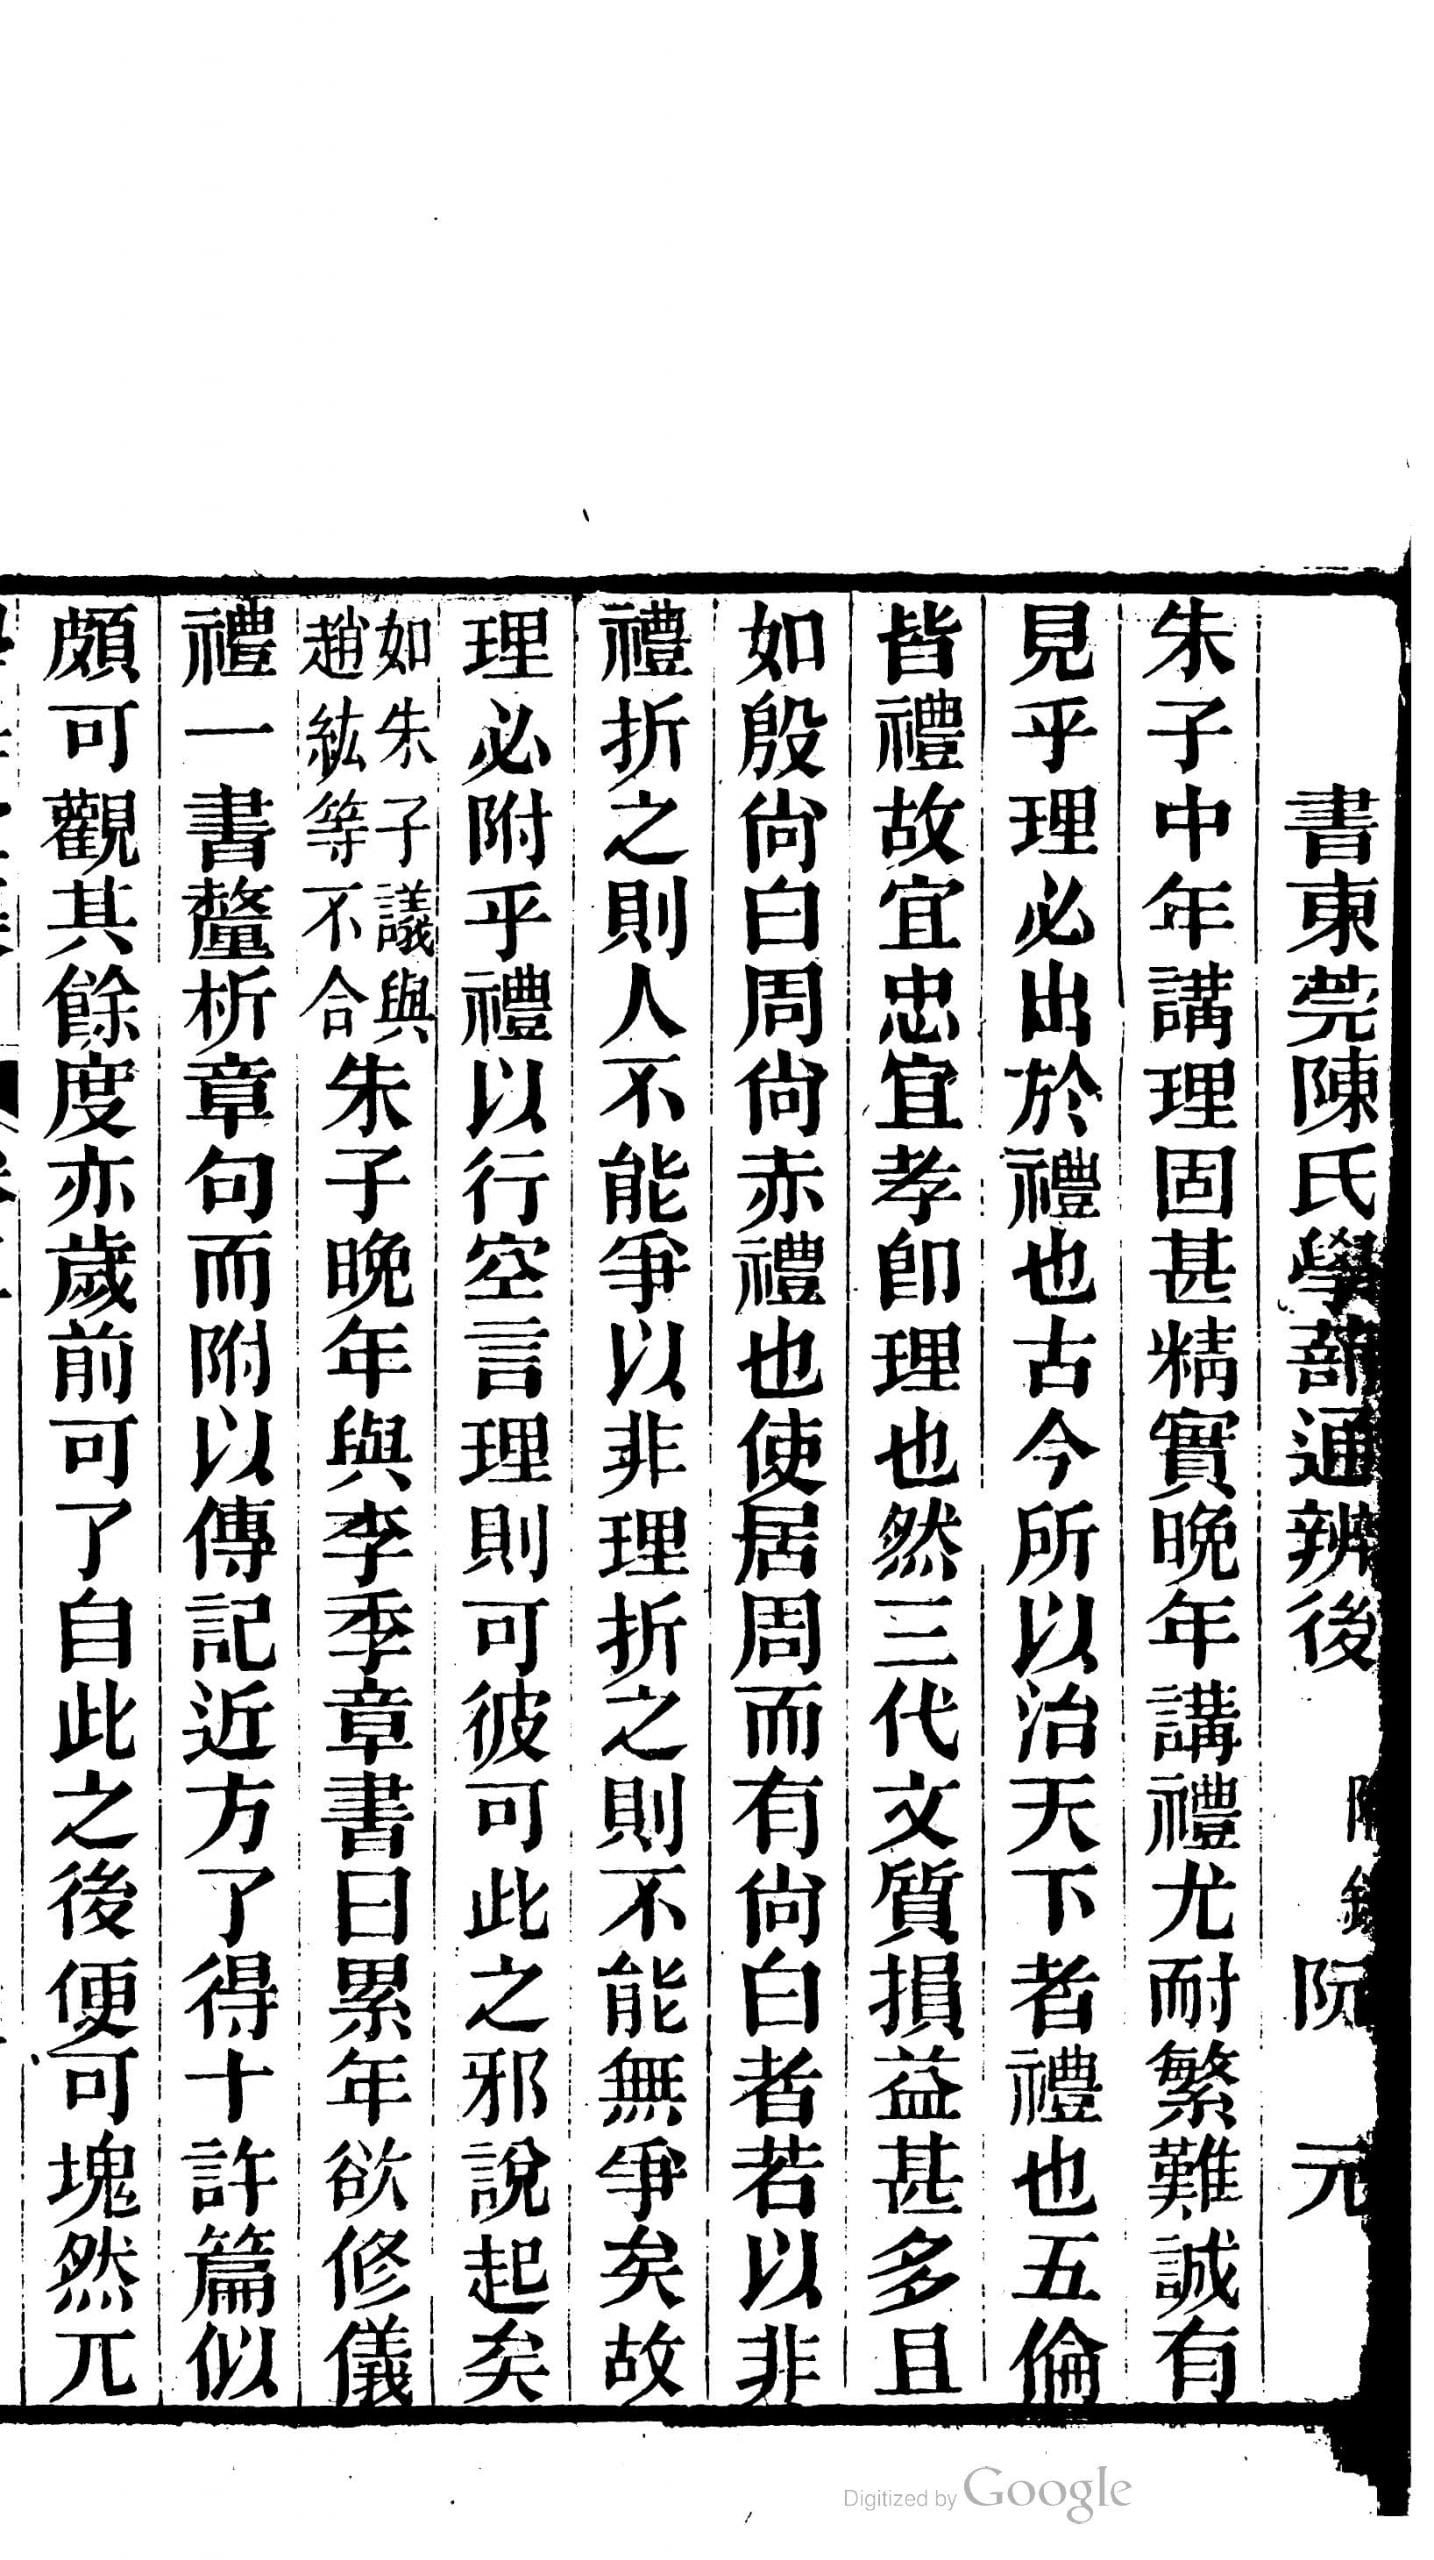 書東莞陳氏學蔀通辨後 附錄 阮 元
朱子中年講理固甚精實晚年講禮尤耐繁難誠有
見乎理必出於禮也古今所以治天下者禮也五倫
皆禮故宜忠宜孝卽理也然三代文質損益甚多且
如殷尙白周尙赤禮也使居周而有尙白者若以非
禮折之則人不能爭以非理折之則不能無爭矣故
理必附乎禮以行空言理則可彼可此之邪說起矣
如朱子議與
趙紘等不合
朱子晚年與李季章書曰累年欲修儀
禮一書釐析章句而附以傳記近方了得十許篇似
頗可觀其餘度亦歲前可了自此之後便可塊然兀
Digitized by Google